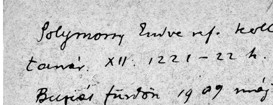 Solymossy Endre ref. koll.
tanár. XII. 1221-22 h.
Buziás fürdőn 1909 máj.